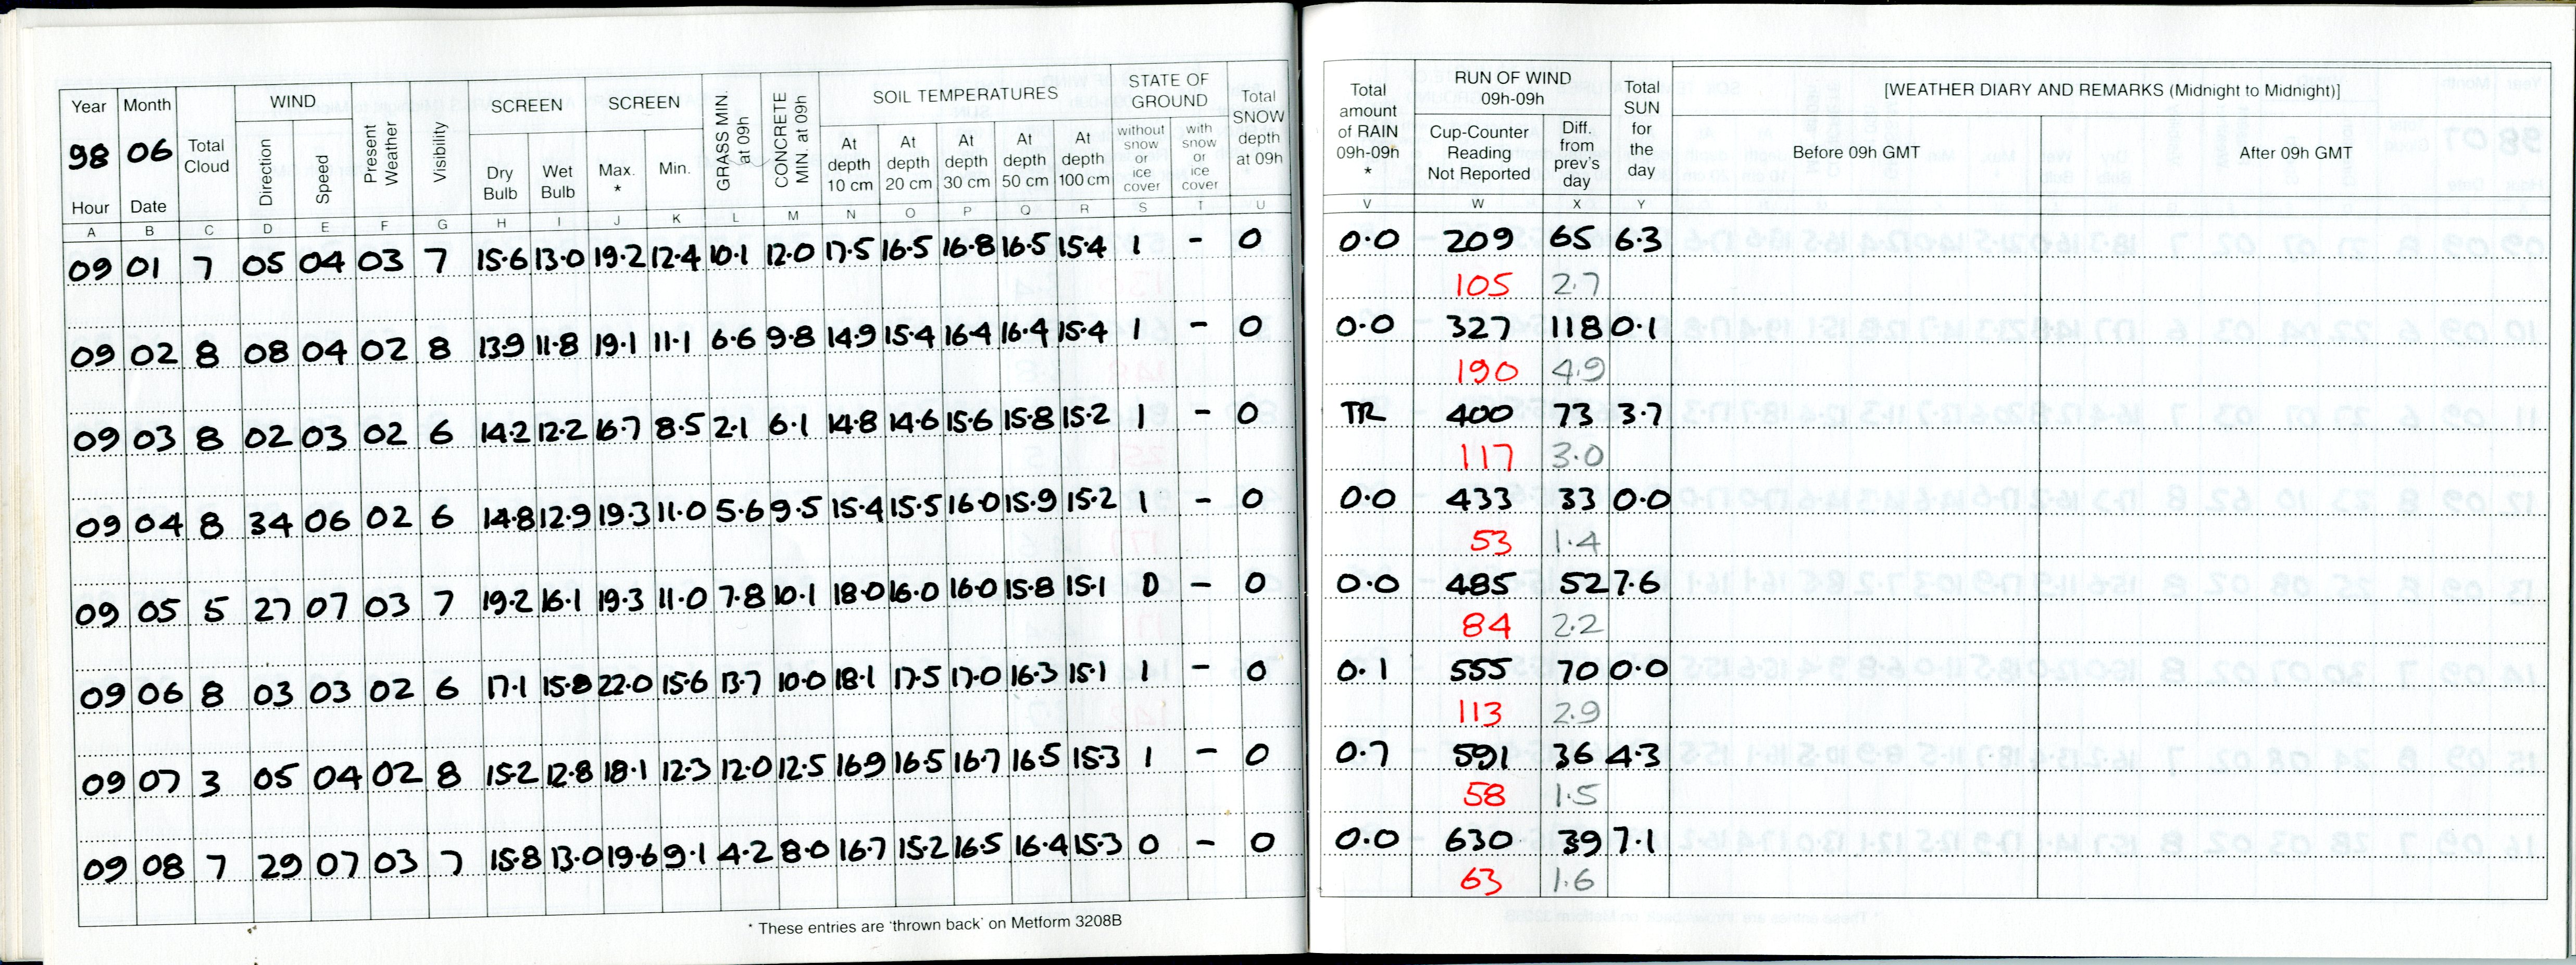 Year Month WIND SCREEN SCREEN GRASS MIN. at 09h CONCRETE MIN. at 09h SOIL TEMPERATURES STATE OF GROUND Total SNOW depth at 09h
98 06 Total Cloud Direction Speed Present Weather Visibility Dry Bulb Wet Bulb Max. * Min. At depth 10 cm At depth 20 cm At depth 30 cm At depth 50 cm At depth 100 cm without snow or ice cover with snow or ice cover
Hour Date
A B C D E F G H I J K L M N O P Q R S T U
09 01 7 05 04 03 7 15.6 13.0 19.2 12.4 10.1 12.0 17.5 16.5 16.8 16.5 15.4 1 - 0
09 02 8 08 04 02 8 13.9 11.8 19.1 11.1 6.6 9.8 14.9 15.4 16.4 16.4 15.4 1 - 0
09 03 8 02 03 02 6 14.2 12.2 16.7 8.5 2.1 6.1 14.8 14.6 15.6 15.8 15.2 1 - 0
09 04 8 34 06 02 6 14.8 12.9 19.3 11.0 5.6 9.5 15.4 15.5 16.0 15.9 15.2 1 - 0
09 05 5 27 07 03 7 19.2 16.1 19.3 11.0 7.8 10.1 18.0 16.0 16.0 15.8 15.1 0 - 0
09 06 8 03 03 02 6 17.1 15.8 22.0 15.6 13.7 10.0 18.1 17.5 17.0 16.3 15.1 1 - 0
09 07 3 05 04 02 8 15.2 12.8 18.1 12.3 12.0 12.5 16.9 16.5 16.7 16.5 15.3 1 - 0
09 08 7 29 07 03 7 15.8 13.0 19.6 9.1 4.2 8.0 16.7 15.2 16.5 16.4 15.3 0 - 0
* These entries are 'thrown back' on Metform 3208B
Total amount of RAIN 09h-09h * RUN OF WIND 09h-09h Total SUN for the day [WEATHER DIARY AND REMARKS (Midnight to Midnight)]
Cup-Counter Reading Not Reported Diff. from prev's day Before 09h GMT After 09h GMT
V W X Y
0.0 209 65 6.3
105 2.7
0.0 327 118 0.1
190 4.9
TR 400 73 3.7
117 3.0
0.0 433 33 0.0
53 1.4
0.0 485 52 7.6
84 2.2
0.1 555 70 0.0
113 2.9
0.7 591 36 4.3
58 1.5
0.0 630 39 7.1
63 1.6